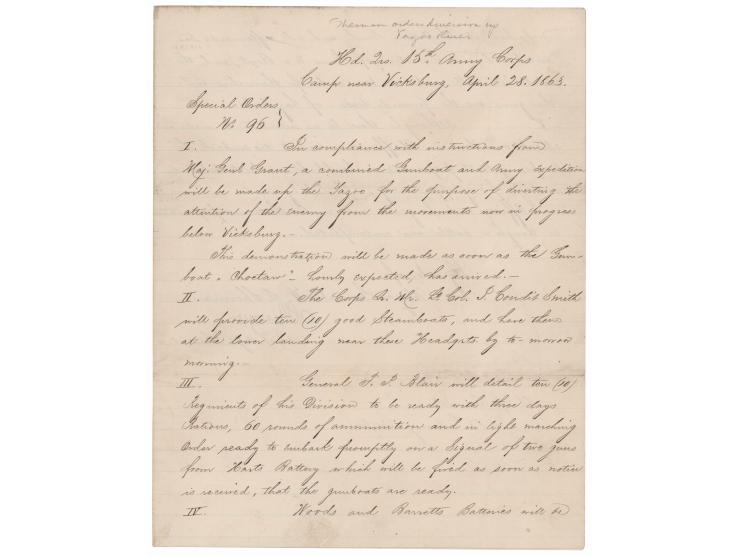 Sherman orders diversion up
Yazoo River
Hd. Qrs. 15th Army Corps
Camp near Vicksburg, April 28. 1863.
Special Orders
No 96
I. In compliance with instructions from
Maj. Genl Grant, a combined Gunboat and Army Expedition
will be made up the Yazoo for the purpose of diverting the
attention of the enemy from the movements now in progress
below Vicksburg.-
This demonstration will be made as soon as the Gun-
boat "Choctaw"- hourly expected, has arrived.-
II. The Corps Qr. Mr. Lt. Col. J. Condit Smith
will provide ten (10) good Steamboats, and have them
at the lower landing near these Headqrts. by to-morrow
morning.-
III. General F. P. Blair will detail ten (10)
Regiments of his Division to be ready with three days
Rations, 60 rounds of ammunition and in light marching
Order ready to embark promptly on a Signal of two guns
from Harts Battery which will be fired as soon as notice
is received, that the gunboats are ready.
IV. Woods and Barretts Batteries will be